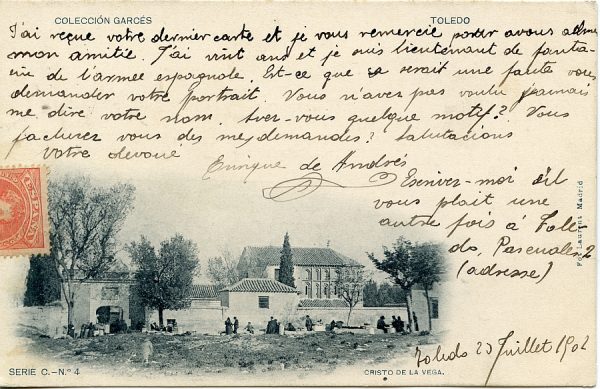 COLECCIÓN GARCÉS
TOLEDO
J'ai reçue votre dernier carte et je vous remercie
mon amitié. J'ai vint ans et je suis lieutenant de
de l'armée espagnole. Est-ce que sa serait une faute vous
demander votre portrait. Vous n'avez pas voulu jamais
me dire votre nom. Avez-vous quelque motif? Vous
vous des mes demandes? Salutacions
Votre devoué
Enrique de Andrés
Escrivez-moi s'il
vous plait une
autre fois à Tole
do, Pascuales 2
(adresse)
Toledo 23 Juillet 1902
Fot. Laurent Madrid
SERIE C.-N.º 4
CRISTO DE LA VEGA.